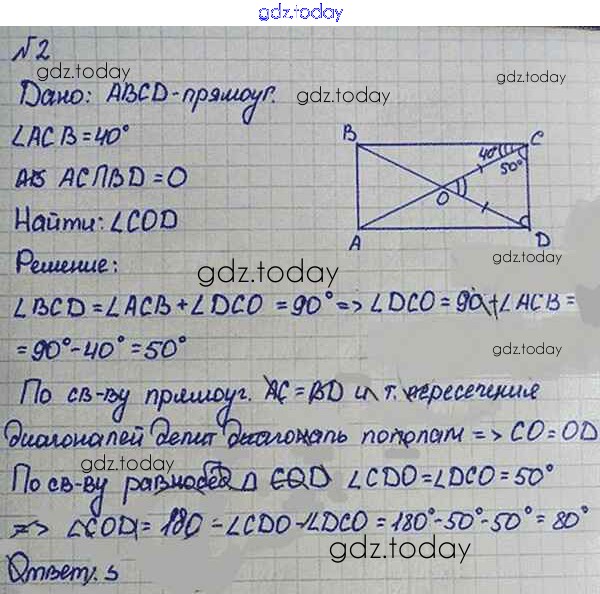 gdz.today
№2
gdz.today
Дано: ABCD-прямоуг.
gdz.today
gdz.today
∠ACB=40°
AC∩BD=O
Найти: ∠COD
B
C
40°
50°
O
A
D
Решение:
gdz.today
gdz.today
∠BCD=∠ACB+∠DCO=90°=>∠DCO=90+∠ACB=
=90°-40°=50°
gdz.today
По св-ву прямоуг. AC=BD и т. пересечения
диагоналей делит диагональ пополам => CO=OD
gdz.today
По св-ву равнобед Δ COD ∠CDO=∠DCO=50°
=> ∠COD=180-∠CDO-∠DCO=180°-50°-50°=80°
gdz.today
Ответ: s